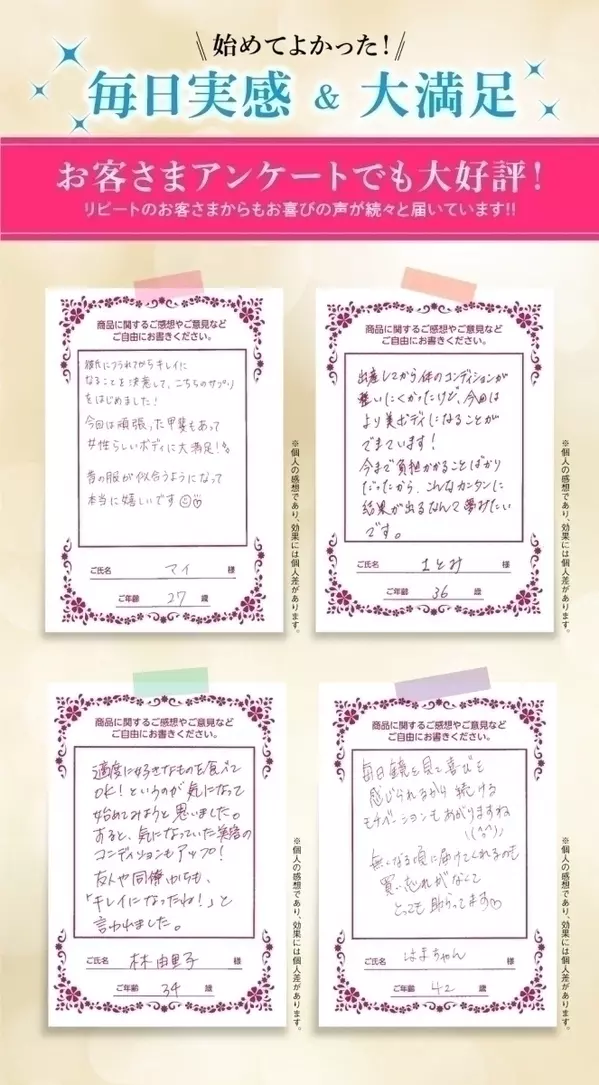 始めてよかった!
毎日実感 & 大満足
お客さまアンケートでも大好評!
リピートのお客さまからもお喜びの声が続々と届いています!!
商品に関するご感想やご意見など
ご自由にお書きください。
彼氏にフラれてからキレイに
なることを決意して、こちらのサプリ
をはじめました!
今回は頑張った甲斐もあって
女性らしいボディに大満足!
昔の服が似合うようになって
本当に嬉しいです
ご氏名 マイ 様
ご年齢 27 歳
※個人の感想であり、効果には個人差があります。
商品に関するご感想やご意見など
ご自由にお書きください。
出産してから体のコンディションが
整いにくかったけど、今回は
より美ボディになることが
できています!
今まで負担かかることばかり
だったから、こんなカンタンに
結果が出るなんて夢みたい
です。
ご氏名 まとみ 様
ご年齢 36 歳
※個人の感想であり、効果には個人差があります。
商品に関するご感想やご意見など
ご自由にお書きください。
適度に好きなものを食べて
OK!というのが気になって
始めてみようと思いました。
すると、気になっていた美容の
コンディションもアップ!
友人や同僚からも、
「キレイになったね!」と
言われました。
ご氏名 林由里子 様
ご年齢 34 歳
※個人の感想であり、効果には個人差があります。
商品に関するご感想やご意見など
ご自由にお書きください。
毎日鏡を見て喜びを
感じられるから続ける
モチベーションもあがりますね
\(^^)/
無くなる頃に届けてくれるのも
買い忘れがなくて
とっても助かってます♡
ご氏名 はまちゃん 様
ご年齢 42 歳
※個人の感想であり、効果には個人差があります。